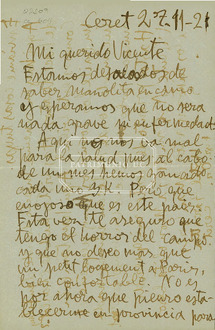 Ceret 27-11-21
Mi querido Vicente
Estamos desolados de
saber Manolita en cama
y esperamos que no sera
nada grave su enfermedad
Aqui no nos va mal
para la salud pues al cabo
de un mes hemos ganado
cada uno 3 K. Pero que
enojoso que es este pais
Esta vez te aseguro que
tengo el horror del campo
y que no deseo mas que
un petit logement a Paris,
bien confortable. No es
por ahora que pienso esta-
blecerme en provincia para